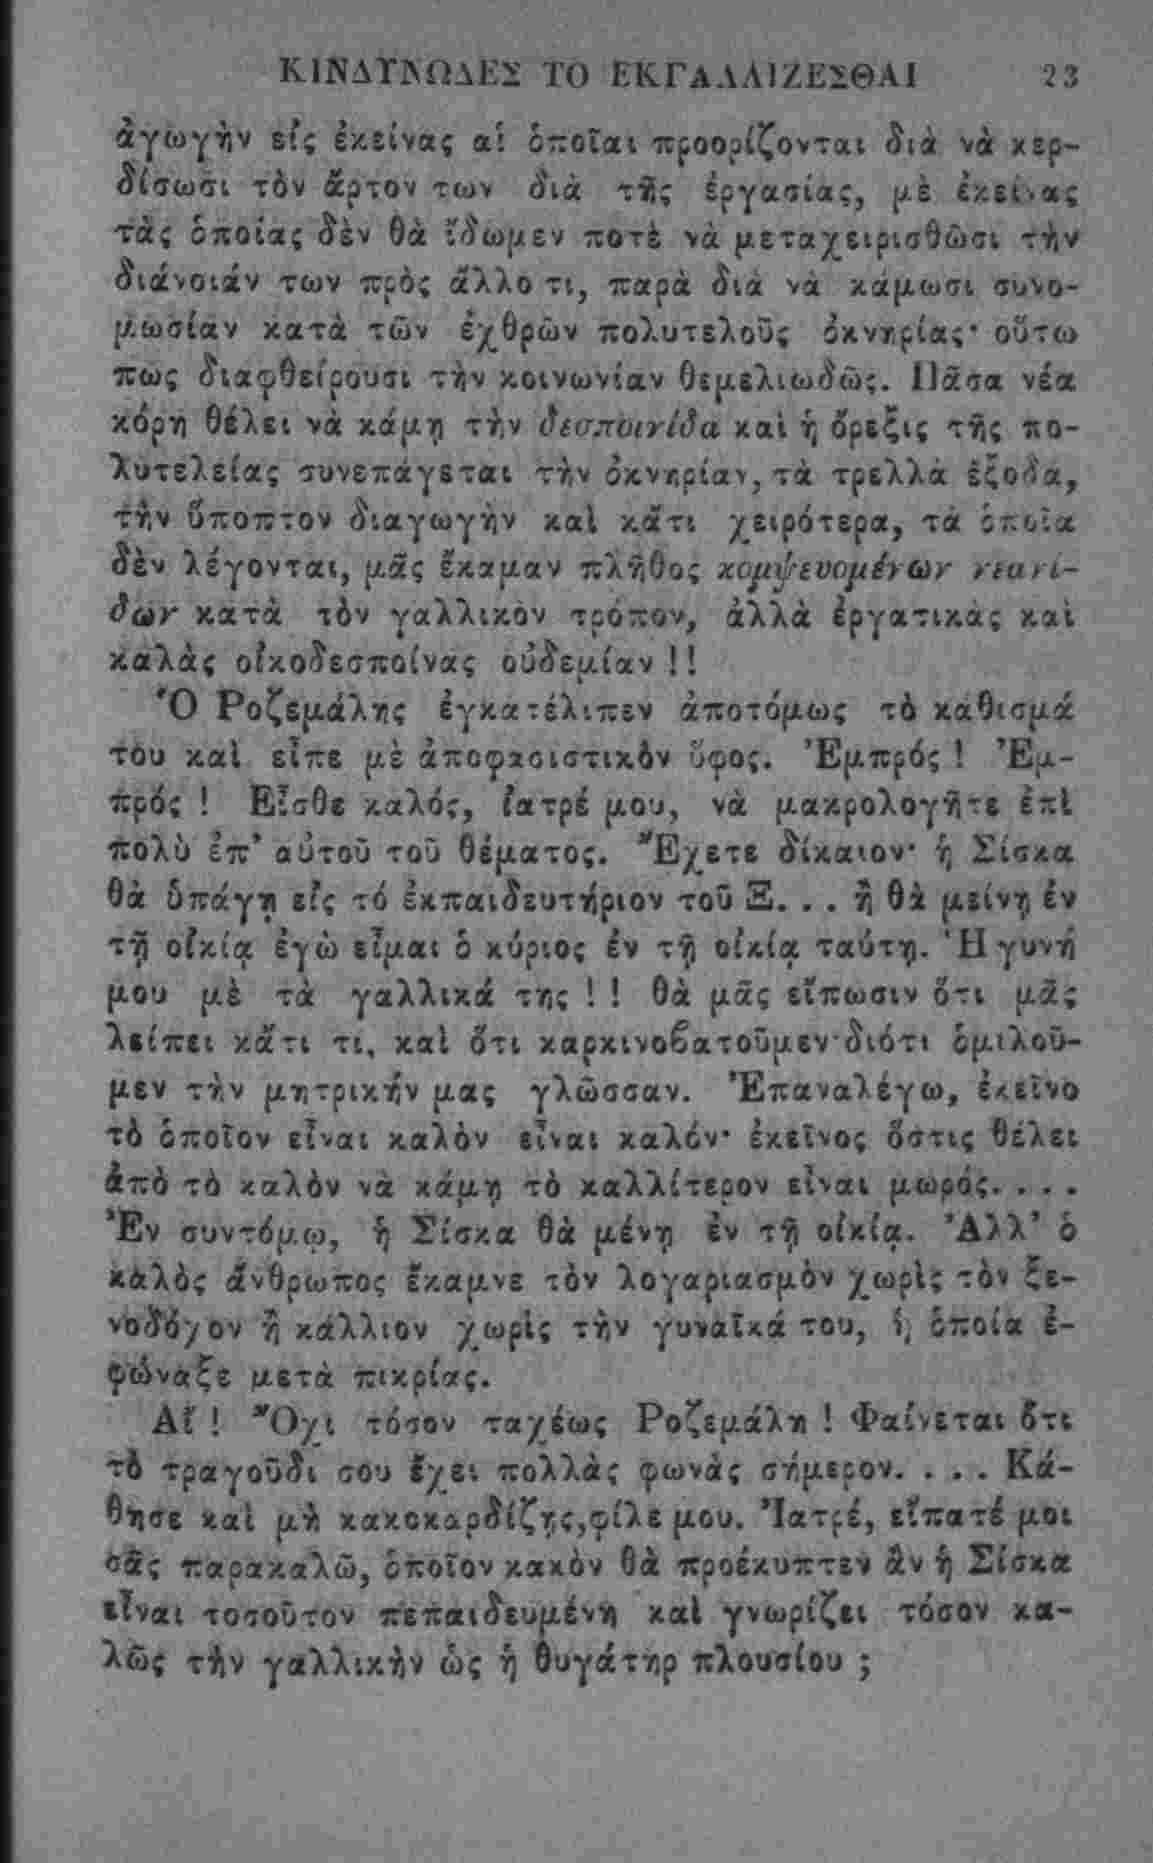 ΚΙΝΔΥΝΩΔΕΣ ΤΟ ΕΚΓΑΛΛΙΖΕΣΘΑΙ 23
ἀγωγὴν εἰς ἐκείνας αἱ ὁποῖαι προορίζονται διὰ νὰ κερ-
δίσωσι τὸν ἄρτον των διὰ τῆς ἐργασίας, μὲ ἐκείνας
τὰς ὁποίας δὲν θὰ ἴδωμεν ποτὲ νὰ μεταχειρισθῶσι τὴν
διάνοιάν των πρὸς ἄλλο τι, παρὰ διὰ νὰ κάμωσι συνο-
μωσίαν κατὰ τῶν ἐχθρῶν πολυτελοῦς ὀκνηρίας· οὕτω
πως διαφθείρουσι τὴν κοινωνίαν θεμελιωδῶς. Πᾶσα νέα
κόρη θέλει νὰ κάμῃ τὴν δεσποινίδα καὶ ἡ ὄρεξις τῆς πο-
λυτελείας συνεπάγεται τὴν ὀκνηρίαν, τὰ τρελλὰ ἔξοδα,
τὴν ὕποπτον διαγωγὴν καὶ κἄτι χειρότερα, τὰ ὁποῖα
δὲν λέγονται, μᾶς ἔκαμαν πλῆθος κομψευομένων νεανί-
δων κατὰ τὸν γαλλικὸν τρόπον, ἀλλὰ ἐργατικὰς καὶ
καλὰς οἰκοδεσποίνας οὐδεμίαν !!
Ὁ Ροζεμάλης ἐγκατέλιπεν ἀποτόμως τὸ κάθισμά
του καὶ εἶπε μὲ ἀποφασιστικὸν ὕφος. Ἐμπρός ! Ἐμ-
πρός ! Εἶσθε καλός, ἰατρέ μου, νὰ μακρολογῆτε ἐπὶ
πολὺ ἐπ' αὐτοῦ τοῦ θέματος. Ἔχετε δίκαιον· ἡ Σίσκα
θὰ ὑπάγῃ εἰς τό ἐκπαιδευτήριον τοῦ Ξ. . . ἢ θὰ μείνῃ ἐν
τῇ οἰκίᾳ ἐγὼ εἶμαι ὁ κύριος ἐν τῇ οἰκίᾳ ταύτῃ. Ἡ γυνή
μου μὲ τὰ γαλλικά της ! ! θὰ μᾶς εἴπωσιν ὅτι μᾶς
λείπει κἄτι τι, καὶ ὅτι καρκινοβατοῦμεν διότι ὁμιλοῦ-
μεν τὴν μητρικήν μας γλῶσσαν. Ἐπαναλέγω, ἐκεῖνο
τὸ ὁποῖον εἶναι καλὸν εἶναι καλόν· ἐκεῖνος ὅστις θέλει
ἀπὸ τὸ καλὸν νὰ κάμῃ τὸ καλλίτερον εἶναι μωρός. . . .
Ἐν συντόμῳ, ἡ Σίσκα θὰ μένῃ ἐν τῇ οἰκίᾳ. Ἀλλ' ὁ
καλὸς ἄνθρωπος ἔκαμνε τὸν λογαριασμὸν χωρὶς τὸν ξε-
νοδόχον ἢ κάλλιον χωρὶς τὴν γυναῖκά του, ἡ ὁποία ἐ-
φώναξε μετὰ πικρίας.
Αἴ ! Ὄχι τόσον ταχέως Ροζεμάλη ! Φαίνεται ὅτι
τὸ τραγοῦδι σου ἔχει πολλὰς φωνὰς σήμερον. . . . Κά-
θησε καὶ μὴ κακοκαρδίζῃς, φίλε μου. Ἰατρέ, εἴπατέ μοι
σᾶς παρακαλῶ, ὁποῖον κακὸν θὰ προέκυπτεν ἂν ἡ Σίσκα
εἶναι τοσοῦτον πεπαιδευμένη καὶ γνωρίζει τόσον κα-
λῶς τὴν γαλλικὴν ὡς ἡ θυγάτηρ πλουσίου ;